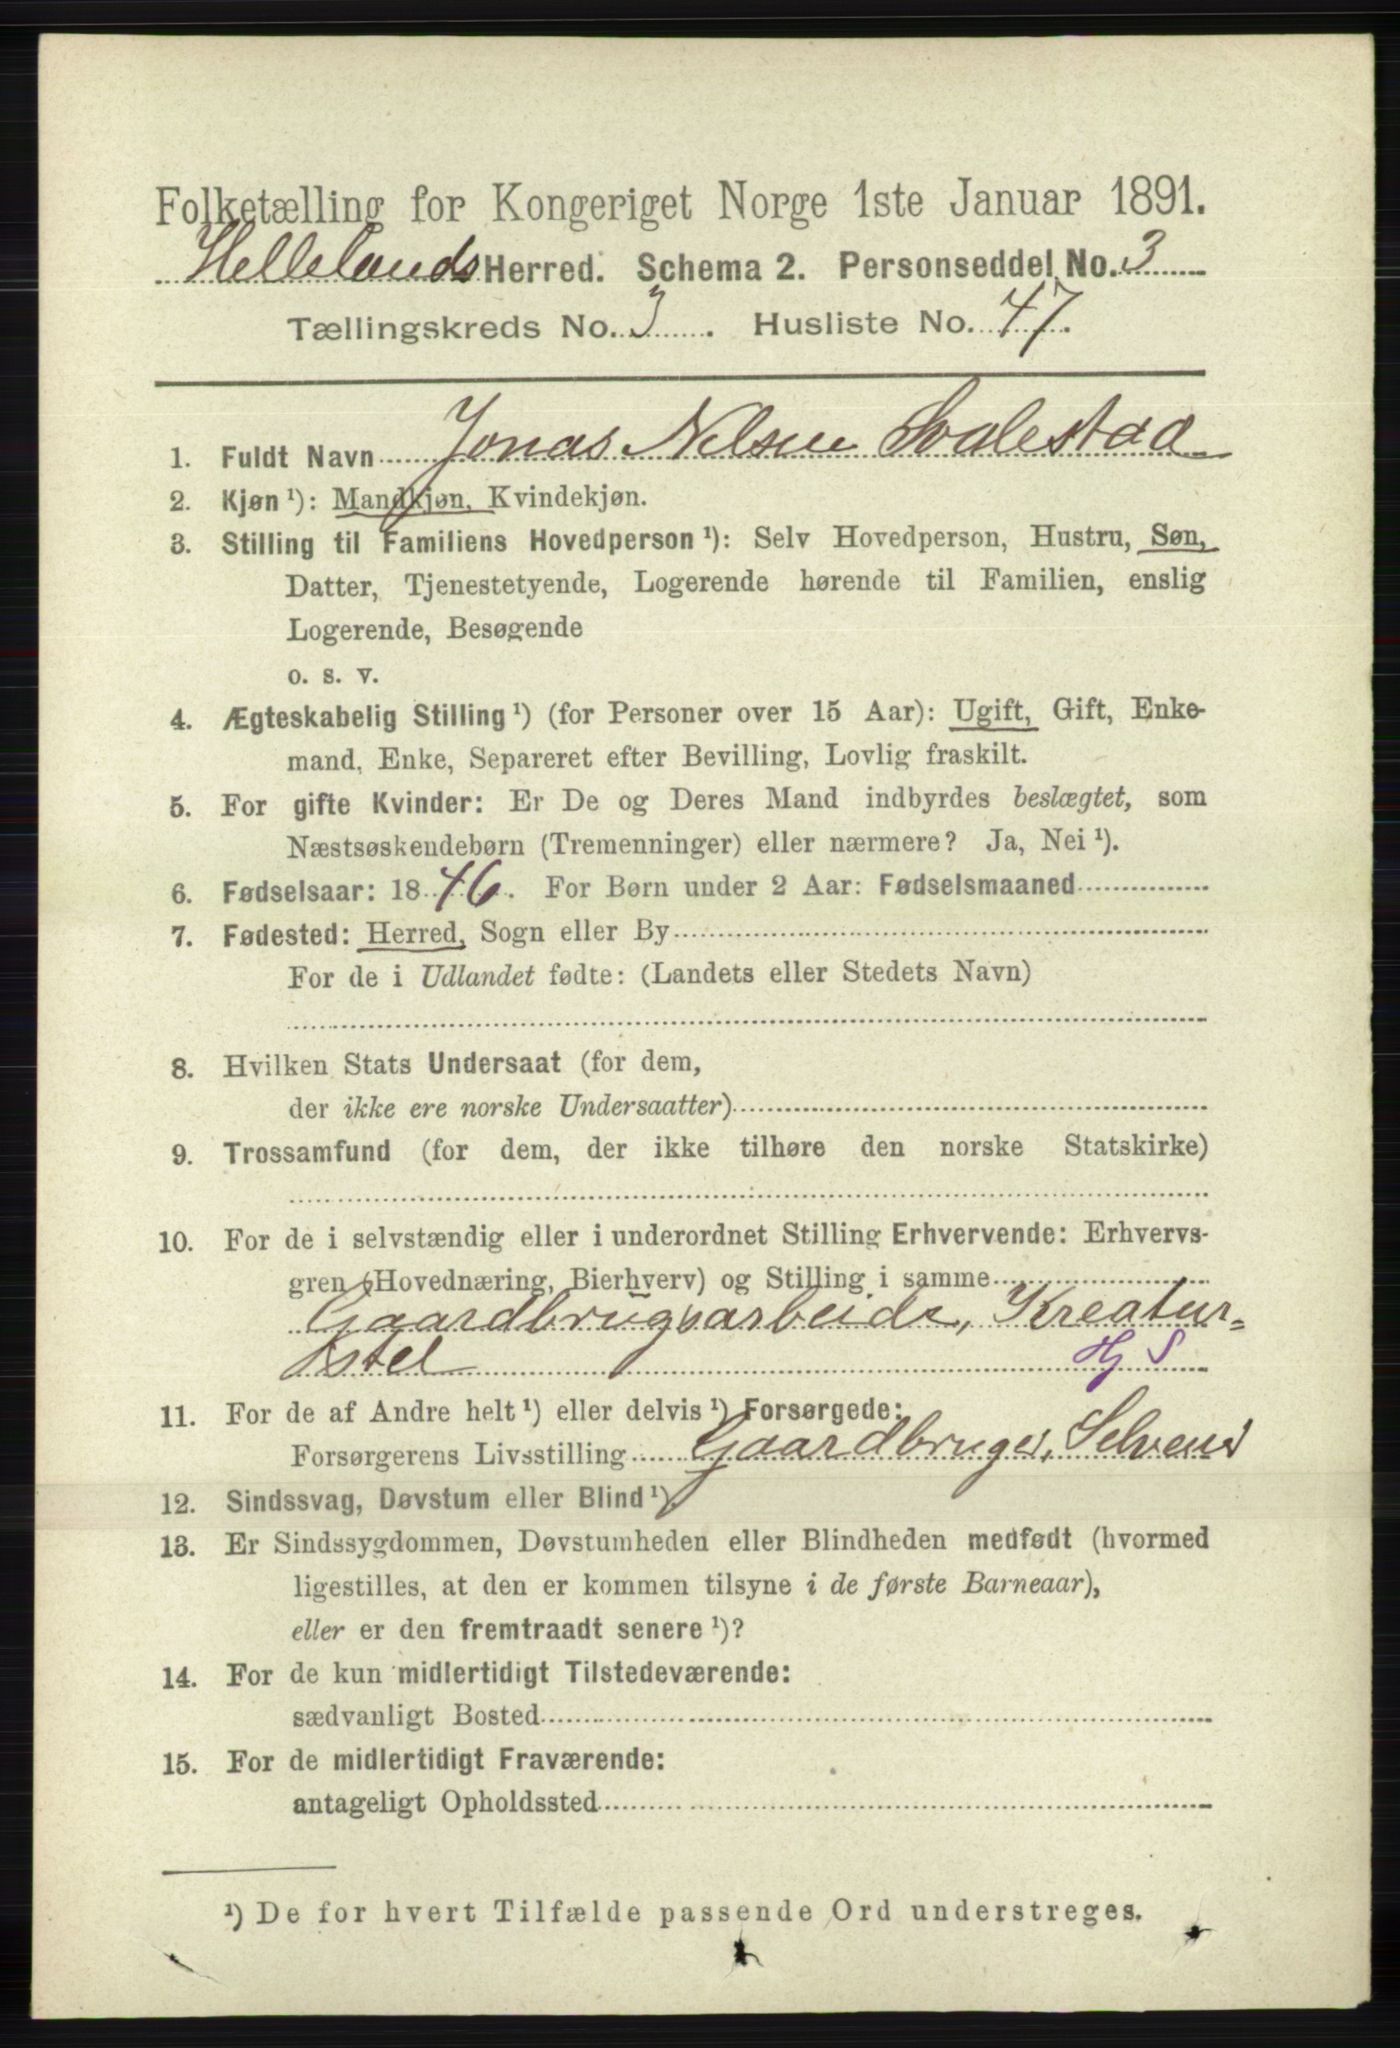 Folketælling for Kongeriget Norge 1ste Januar 1891.
Hellelands Herred. Schema 2. Personseddel No. 3
Tællingskreds No. 3. Husliste No. 47.
1. Fuldt Navn Jonas Nelsen Svalestad
2. Kjøn ¹): Mandkjøn, Kvindekjøn.
3. Stilling til Familiens Hovedperson ¹): Selv Hovedperson, Hustru, Søn,
Datter, Tjenestetyende, Logerende hørende til Familien, enslig
Logerende, Besøgende
o. s. v.
4. Ægteskabelig Stilling ¹) (for Personer over 15 Aar): Ugift, Gift, Enke-
mand, Enke, Separeret efter Bevilling, Lovlig fraskilt.
5. For gifte Kvinder: Er De og Deres Mand indbyrdes beslægtet, som
Næstsøskendebørn (Tremenninger) eller nærmere? Ja, Nei ¹).
6. Fødselsaar: 1846. For Børn under 2 Aar: Fødselsmaaned
7. Fødested: Herred, Sogn eller By
For de i Udlandet fødte: (Landets eller Stedets Navn)
8. Hvilken Stats Undersaat (for dem,
der ikke ere norske Undersaatter)
9. Trossamfund (for dem, der ikke tilhøre den norske Statskirke)
10. For de i selvstændig eller i underordnet Stilling Erhvervende: Erhvervs-
gren (Hovednæring, Bierhverv) og Stilling i samme
Gaardbrugsarbeide, Kreatur-
stel Hj S
11. For de af Andre helt ¹) eller delvis ¹) Forsørgede:
Forsørgerens Livsstilling Gaardbruger, Selveier
12. Sindssvag, Døvstum eller Blind ¹).
13. Er Sindssygdommen, Døvstumheden eller Blindheden medfødt (hvormed
ligestilles, at den er kommen tilsyne i de første Barneaar),
eller er den fremtraadt senere ¹)?
14. For de kun midlertidigt Tilstedeværende:
sædvanligt Bosted
15. For de midlertidigt Fraværende:
antageligt Opholdssted
¹) De for hvert Tilfælde passende Ord understreges.